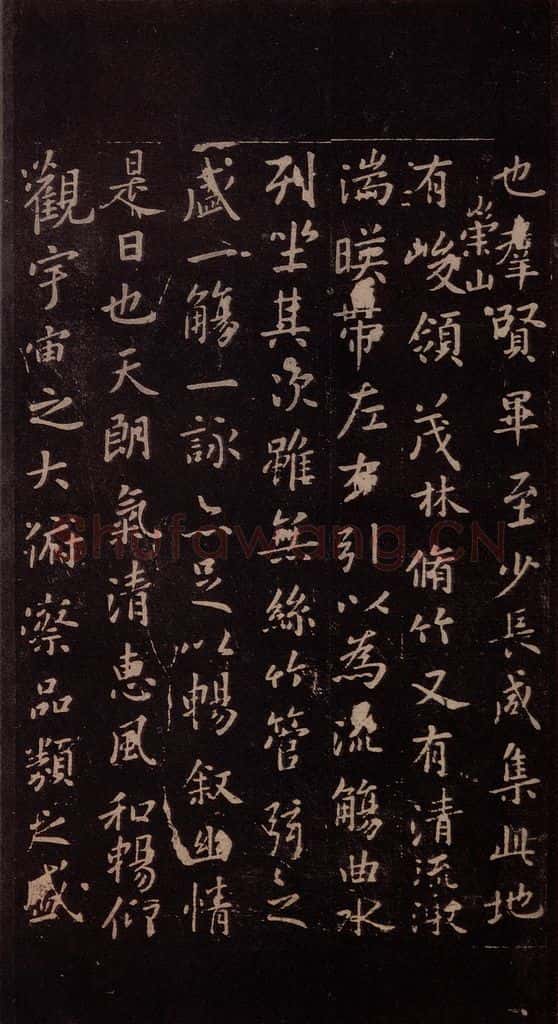 也羣賢畢至少長咸集此地
有崇山峻領茂林脩竹又有清流激
湍暎帶左右引以為流觴曲水
列坐其次雖無絲竹管弦之
盛一觴一詠亦足以暢敘幽情
是日也天朗氣清惠風和暢仰
觀宇宙之大俯察品類之盛
Shufawang.CN